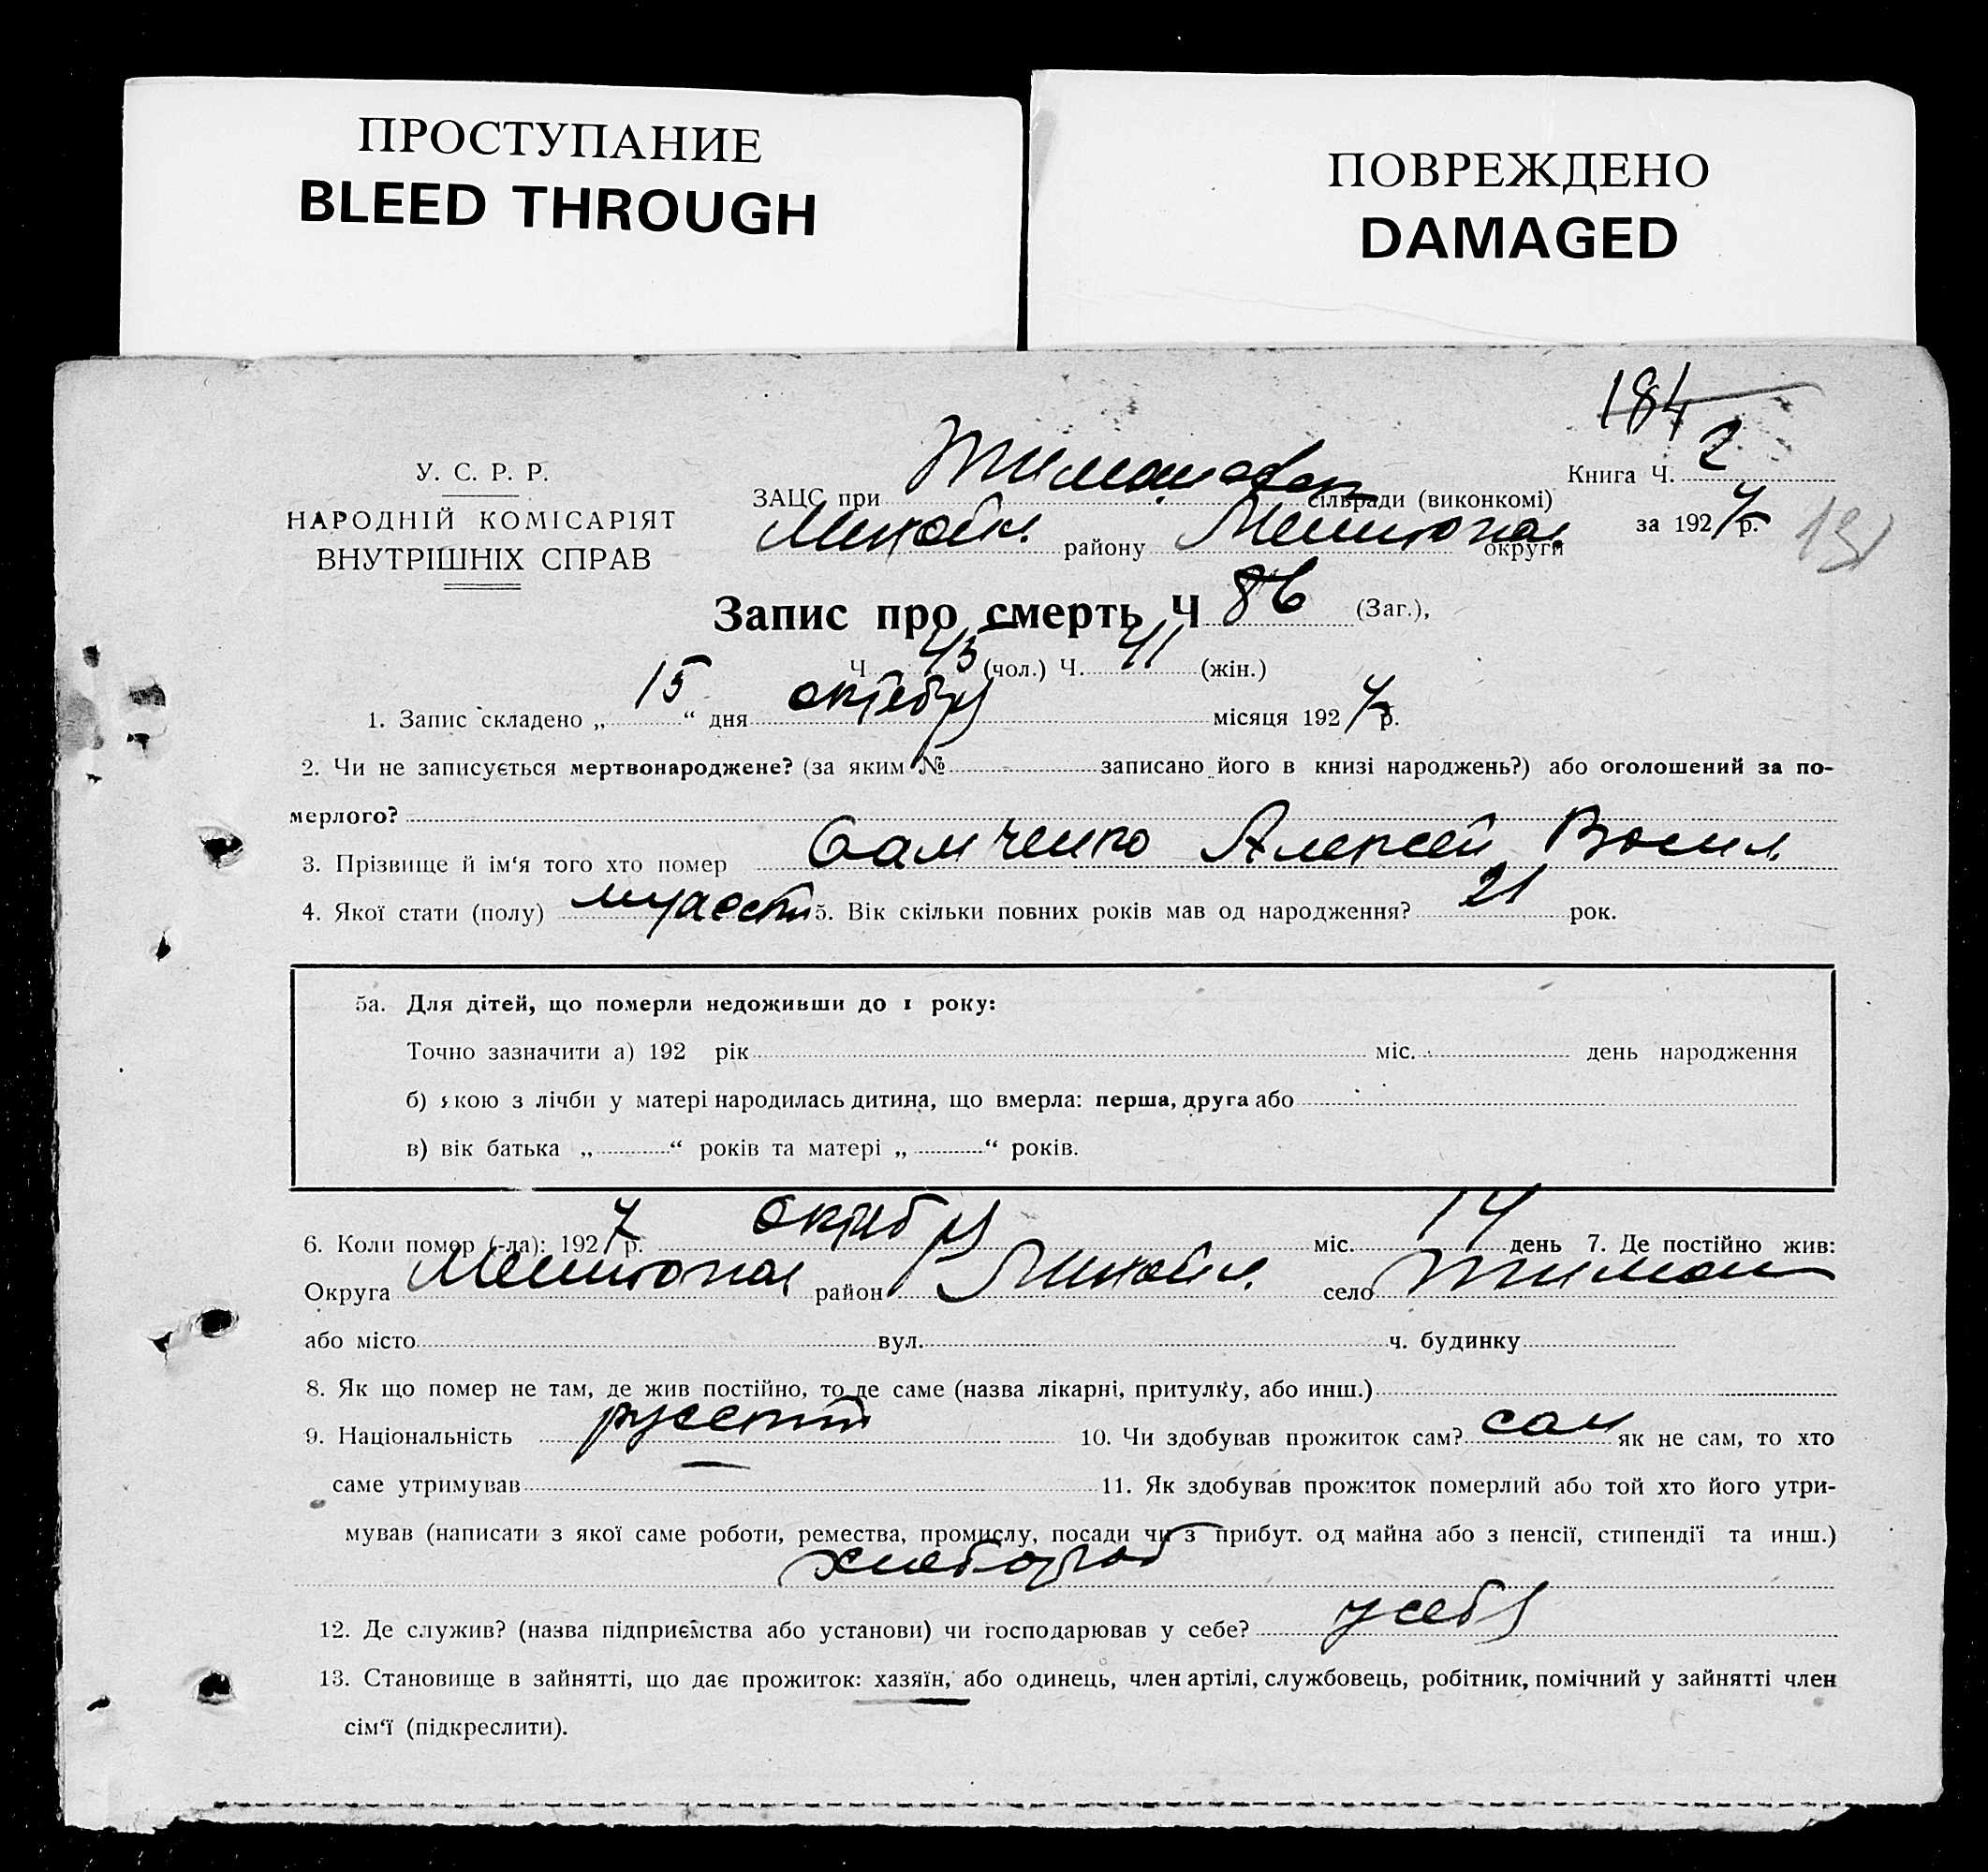 ПРОСТУПАНИЕ
BLEED THROUGH
ПОВРЕЖДЕНО
DAMAGED
184
У. С. Р. Р.
НАРОДНІЙ КОМІСАРІЯТ
ВНУТРІШНІХ СПРАВ
ЗАЦС при Тимашовск сільради (виконкомі)
району Мелитопол округи
Книга Ч. 2
за 1927 р.
131
Запис про смерть Ч 86 (Заг.),
Ч 45 (чол.) Ч. 41 (жін.)
1. Запис складено „ 15 “ дня октября місяця 1927 р.
2. Чи не записується мертвонароджене? (за яким № записано його в книзі народжень?) або оголошений за по-
мерлого?
3. Прізвище й ім‘я того хто помер Самченко Алексей Васил.
4. Якої стати (полу) мужеск 5. Вік скільки повних років мав од народження? 21 рок.
5а. Для дітей, що померли недоживши до 1 року:
Точно зазначити а) 192 рік міс. день народження
б) якою з лічби у матері народилась дитина, що вмерла: перша, друга або
в) вік батька „ “ років та матері „ “ років.
6. Коли помер (-ла): 1927 р. октября міс. 14 день 7. Де постійно жив:
Округа Мелитопол район село Тимош
або місто вул. ч. будинку
8. Як що помер не там, де жив постійно, то де саме (назва лікарні, притулку, або инш.)
9. Національність русский 10. Чи здобував прожиток сам? сам як не сам, то хто
саме утримував 11. Як здобував прожиток померлий або той хто його утри-
мував (написати з якої саме роботи, ремества, промислу, посади чи з прибут. од майна або з пенсії, стипендії та инш.)
хлебороб
12. Де служив? (назва підприємства або установи) чи господарював у себе? у себя
13. Становище в зайнятті, що дає прожиток: хазяїн, або одинець, член артілі, службовець, робітник, помічний у зайнятті член
сім‘ї (підкреслити).